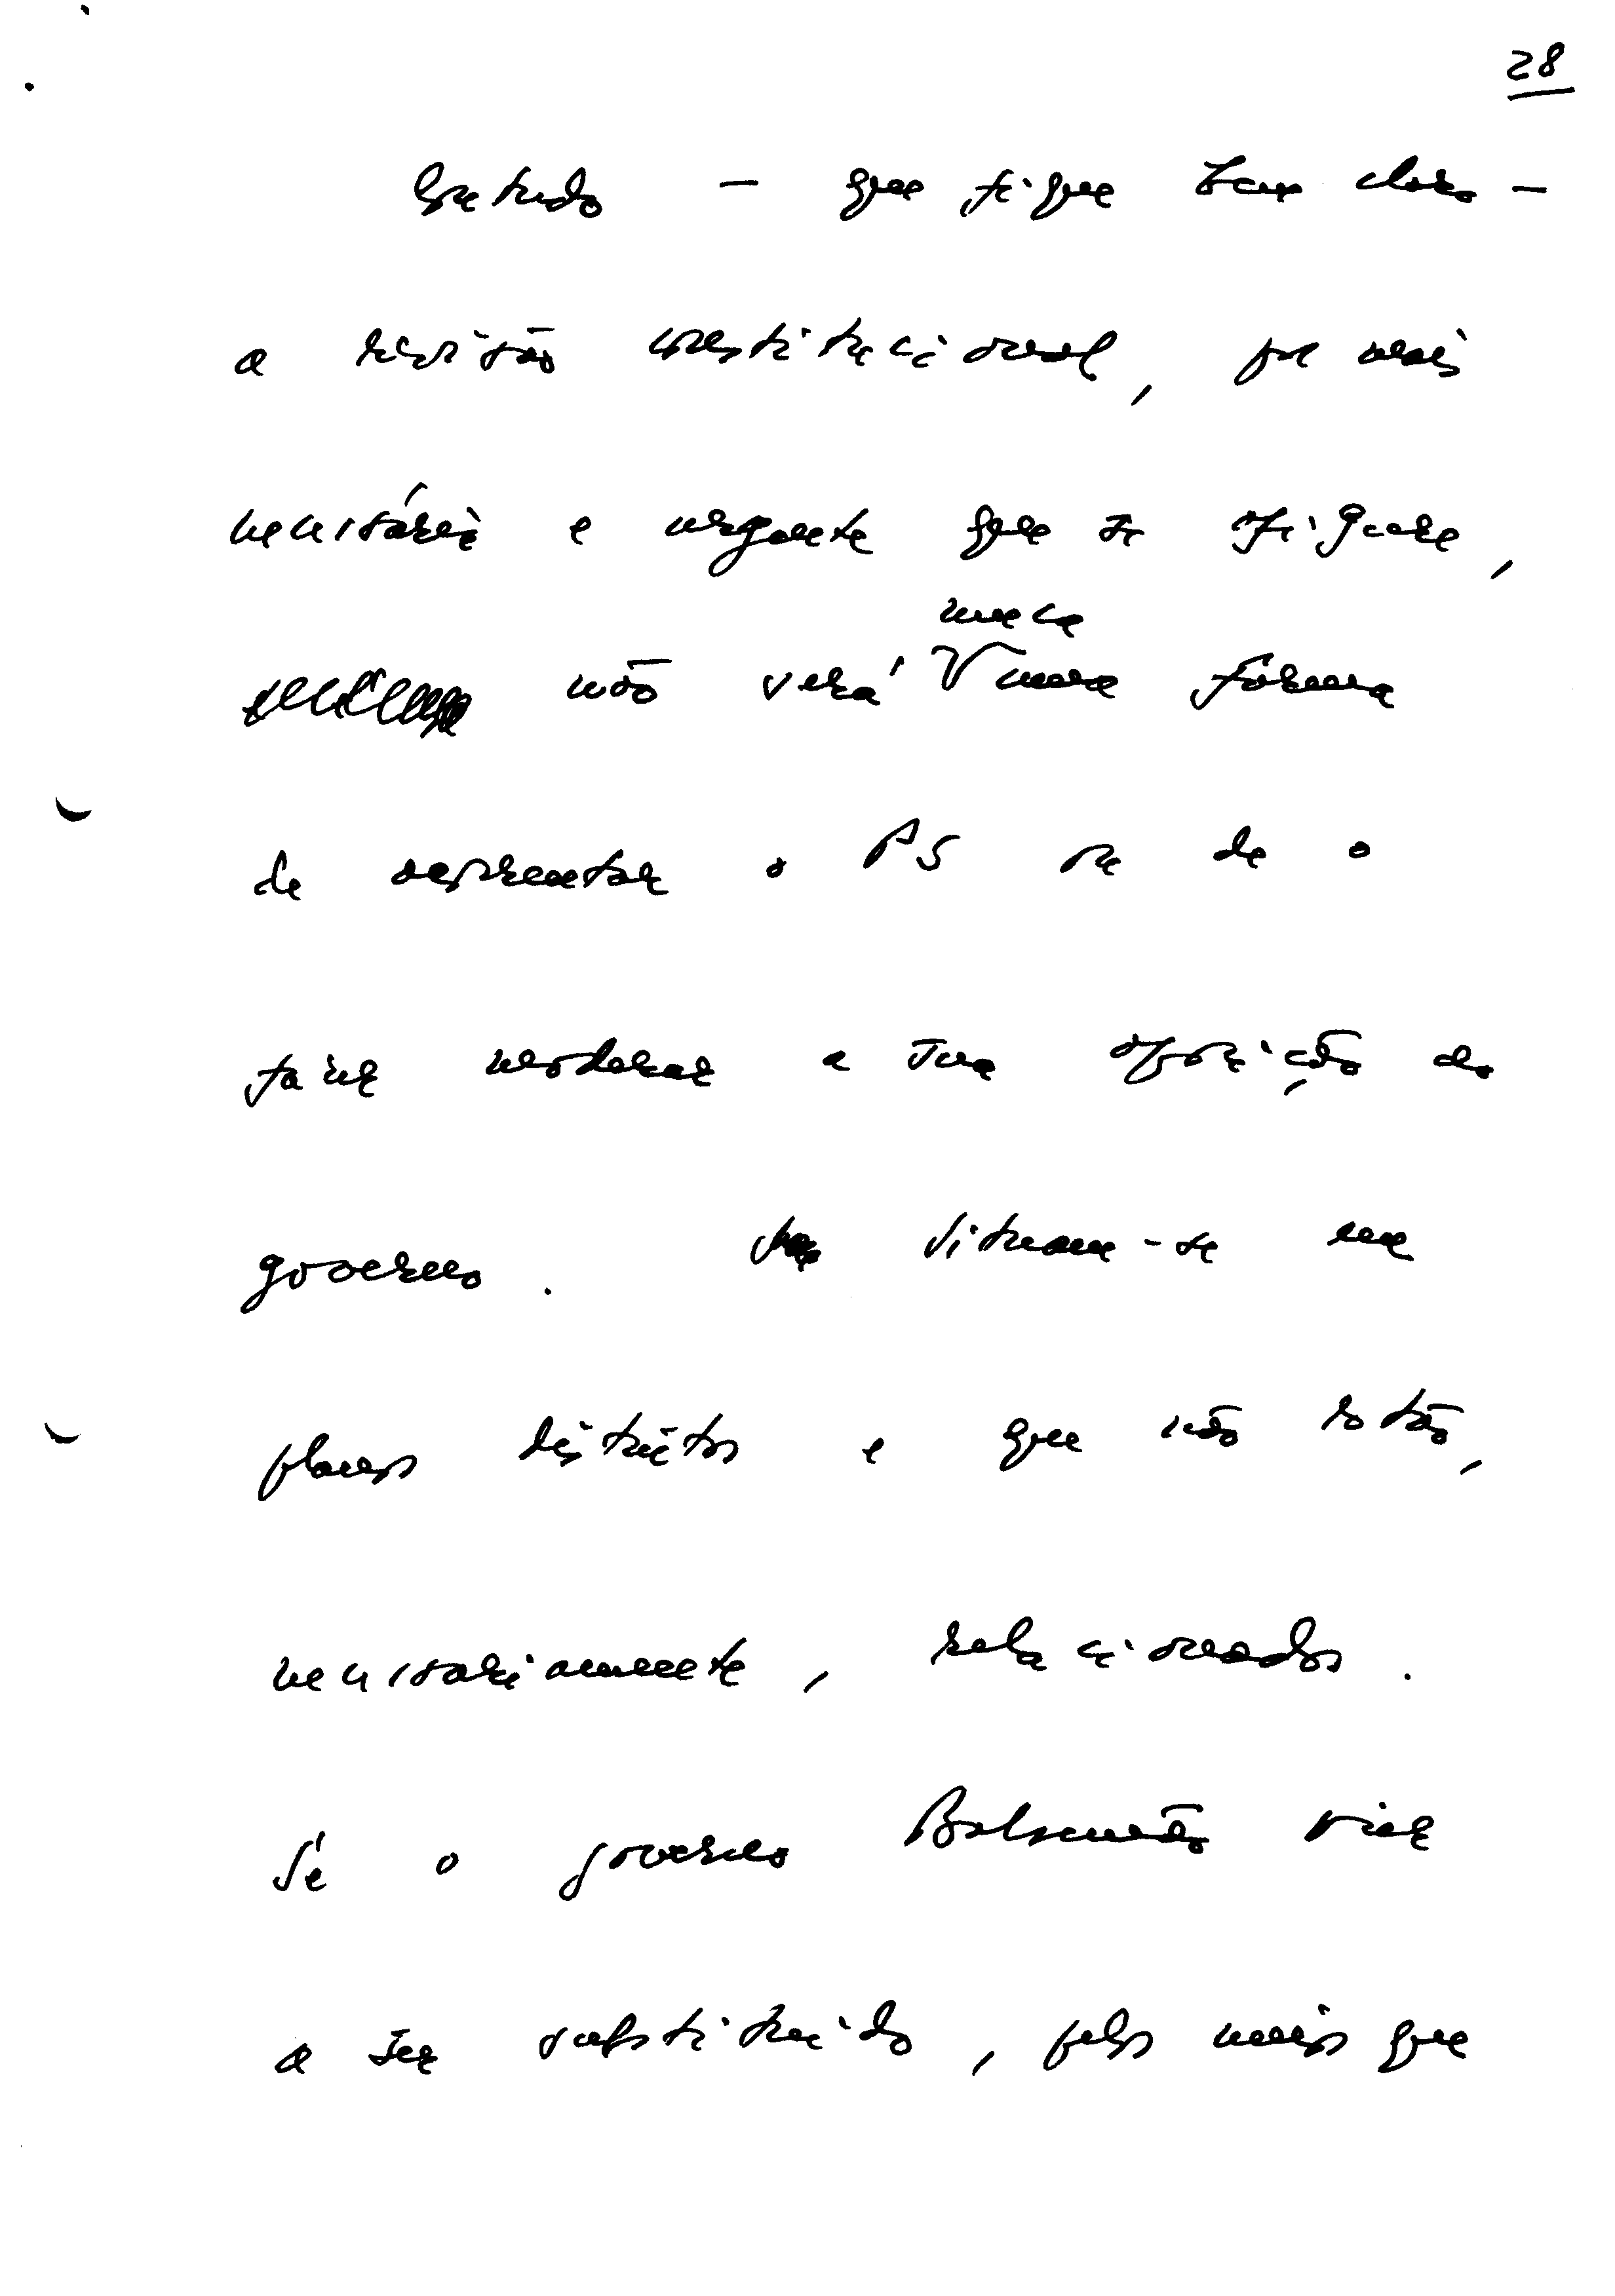 28
Contudo — que fique bem claro —
a revisão constitucional, por mais
necessária e urgente que se afigure,
nunca
não será uma forma
de acorrentar o PS ou de o
fazer moderar a sua oposição ao
governo. Situam-se em
planos distintos e que não estão,
necessariamente, relacionados.
Se o governo Balsemão vier
a ser substituído, pelo menos que